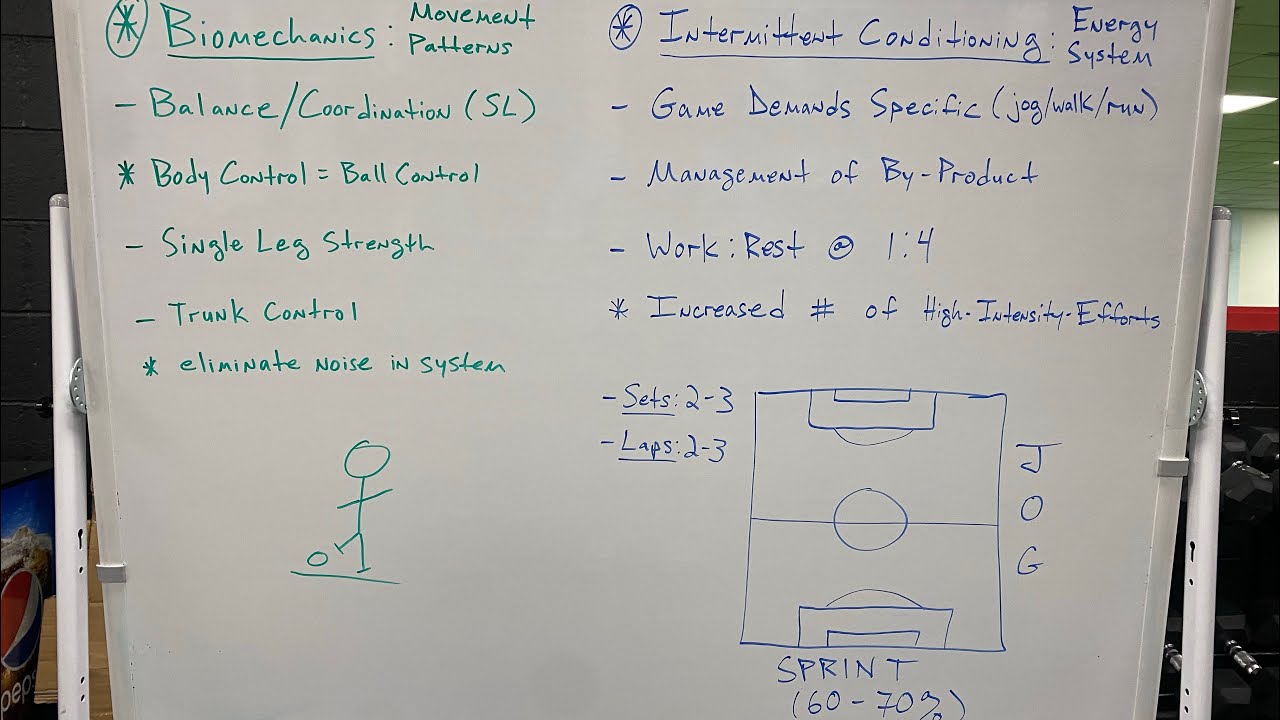 * Biomechanics: Movement
Patterns
- Balance/Coordination (SL)
* Body Control = Ball Control
- Single Leg Strength
- Trunk Control
* eliminate noise in system
* Intermittent Conditioning: Energy
System
- Game Demands Specific (jog/walk/run)
- Management of By-Product
- Work:Rest @ 1:4
* Increased # of High-Intensity-Efforts
- Sets: 2-3
- Laps: 2-3
JOG
SPRINT
(60-70%)
pepsi